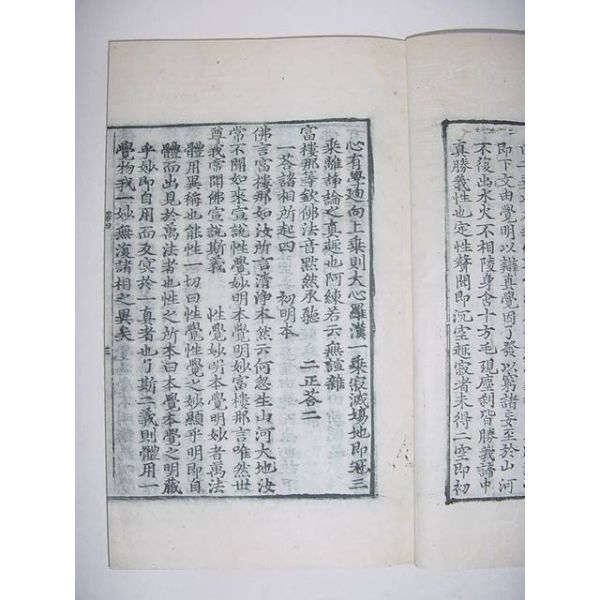 即下文由覺明以辯真覺因了發以窮諸妄至於山河
不復出水火不相陵身含十方毛現塵刹皆勝義諦中
真勝義性也定性聲聞即沉空趣寂者未得二空即初
心有學迴向上乘則大心羅漢一乘寂滅場地即冠三
乘離諍論之真趣也阿練若云無諠雜
富樓那等欽佛法音默然承聽 二正荅二
一荅諸相所起四 初明本
佛言富樓那如汝所言清淨本然云何忽生山河大地汝
常不聞如來宣說性覺妙明本覺明妙富樓那言唯然世
尊我常聞佛宣說斯義 性覺妙明本覺明妙者萬法
體用異稱也能性一切曰性覺性覺之妙顯乎明即自
體而出見於萬法者也性之所本曰本覺本覺之明藏
乎妙即自用而反冥於一真者也了斯二義則體用一
覺物我一妙無復諸相之異矣